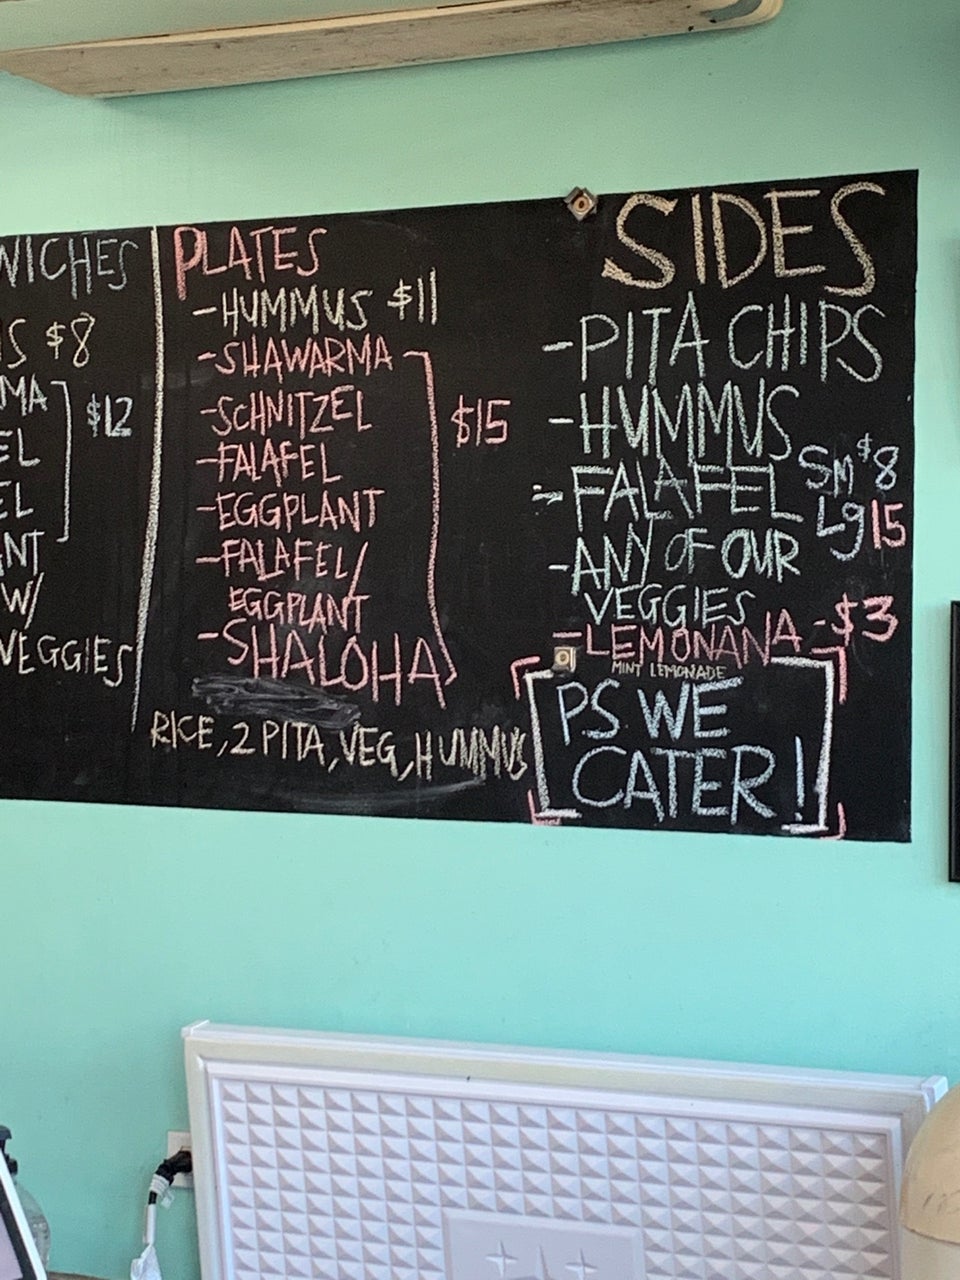 WICHES
S $8
MA
EL
$12
EL
NT
W/
VEGGIES
PLATES
-HUMMUS $11
-SHAWARMA
-SCHNITZEL
-FALAFEL
-EGGPLANT
-FALAFEL/
EGGPLANT
-SHALOHA
$15
RICE, 2 PITA, VEG, HUMMUS
SIDES
-PITA CHIPS
-HUMMUS
-FALAFEL
Sm $8
Lg 15
-ANY OF OUR
VEGGIES
-LEMONANA -$3
MINT LEMONADE
PS WE
CATER!